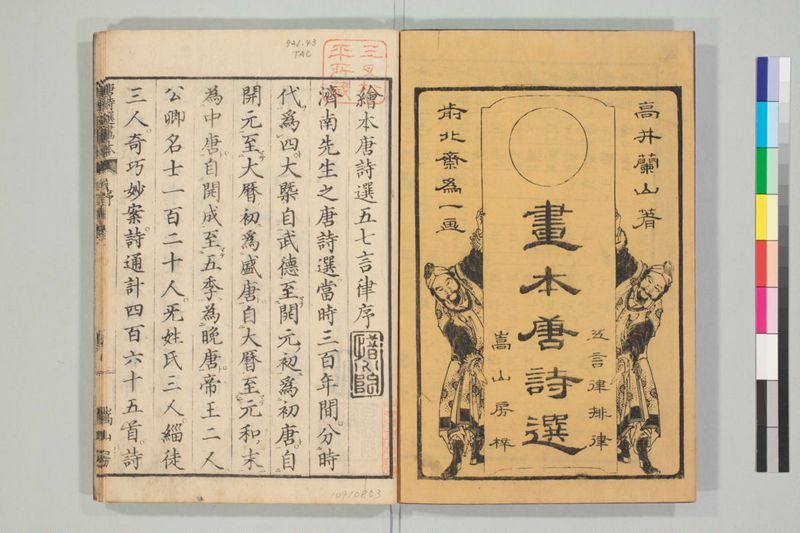 高井蘭山著
畫本唐詩選
五言律排律
嵩山房梓
前北齋為一画
繪本唐詩選五七言律序
濟南先生之唐詩選當時三百年間分時
代為四大槩自武德至開元初為初唐自
開元至大曆初為盛唐自大曆至元和末
為中唐自開成至五季為晚唐帝王二人
公卿名士一百二十人无姓氏三人緇徒
三人奇巧妙案詩通計四百六十五首詩
序
嵩山房
941.43
TAC
10910803